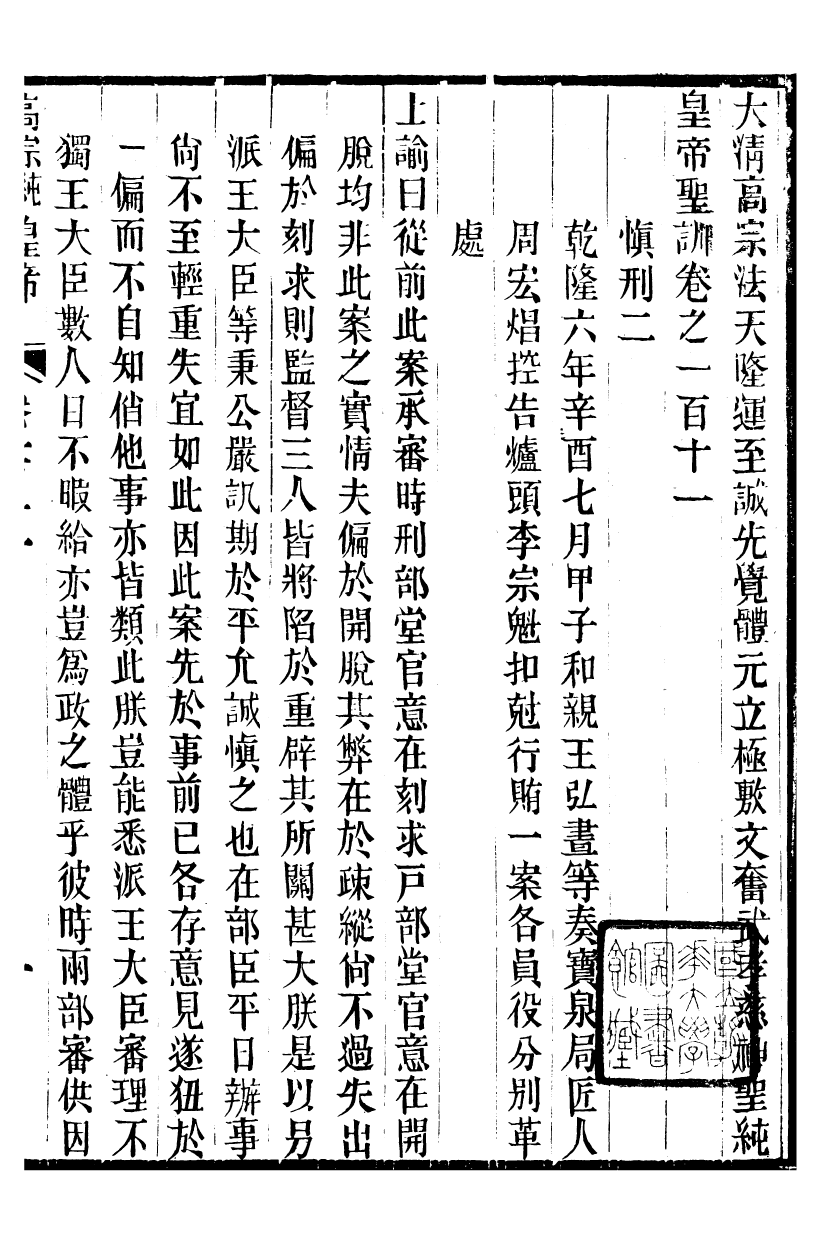 大淸高宗法天隆運至誠先覺體元立極敷文奮武孝慈神聖純
皇帝聖訓卷之一百十一
愼刑二
乾隆六年辛酉七月甲子和親王弘晝等奏寶泉局匠人
周宏熠控告爐頭李宗魁扣尅行賄一案各員役分別革
處
上諭曰從前此案承審時刑部堂官意在刻求戸部堂官意在開
脫均非此案之實情夫偏於開脫其弊在於疎縱尙不過失出
偏於刻求則監督三人皆將陷於重辟其所關甚大朕是以另
派王大臣等秉公嚴訊期於平允誠愼之也在部臣平日辦事
尙不至輕重失宜如此因此案先於事前已各存意見遂狃於
一偏而不自知倘他事亦皆類此朕豈能悉派王大臣審理不
獨王大臣數人日不暇給亦豈爲政之體乎彼時兩部審供因
高宗純皇帝
國立清華大學圖書館藏